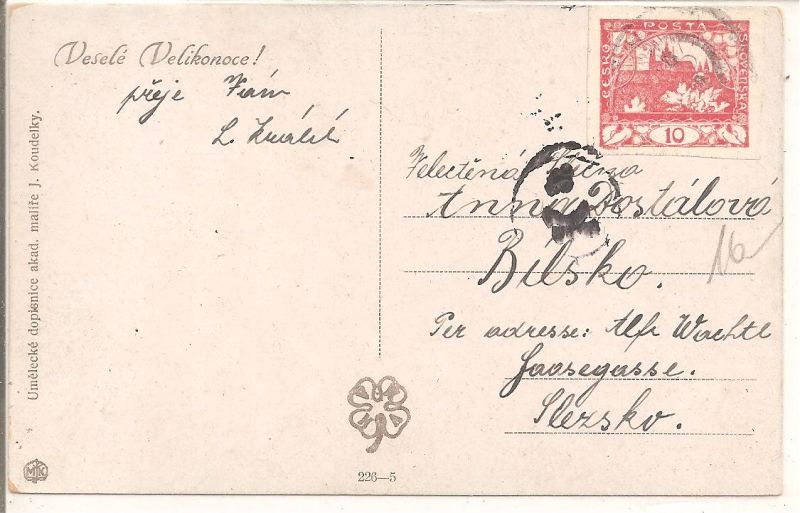 Veselé Velikonoce!
přeje Vám
L. Králík
Umělecké dopisnice akad. malíře J. Koudelky.
MK
226—5
POŠTA
ČESKO
SLOVENSKÁ
10
Velectěná Slečna
Anna Dostálová
Bílsko.
Per adresse: Alfr Wachtl
Jaosegasse.
Slezsko.
16